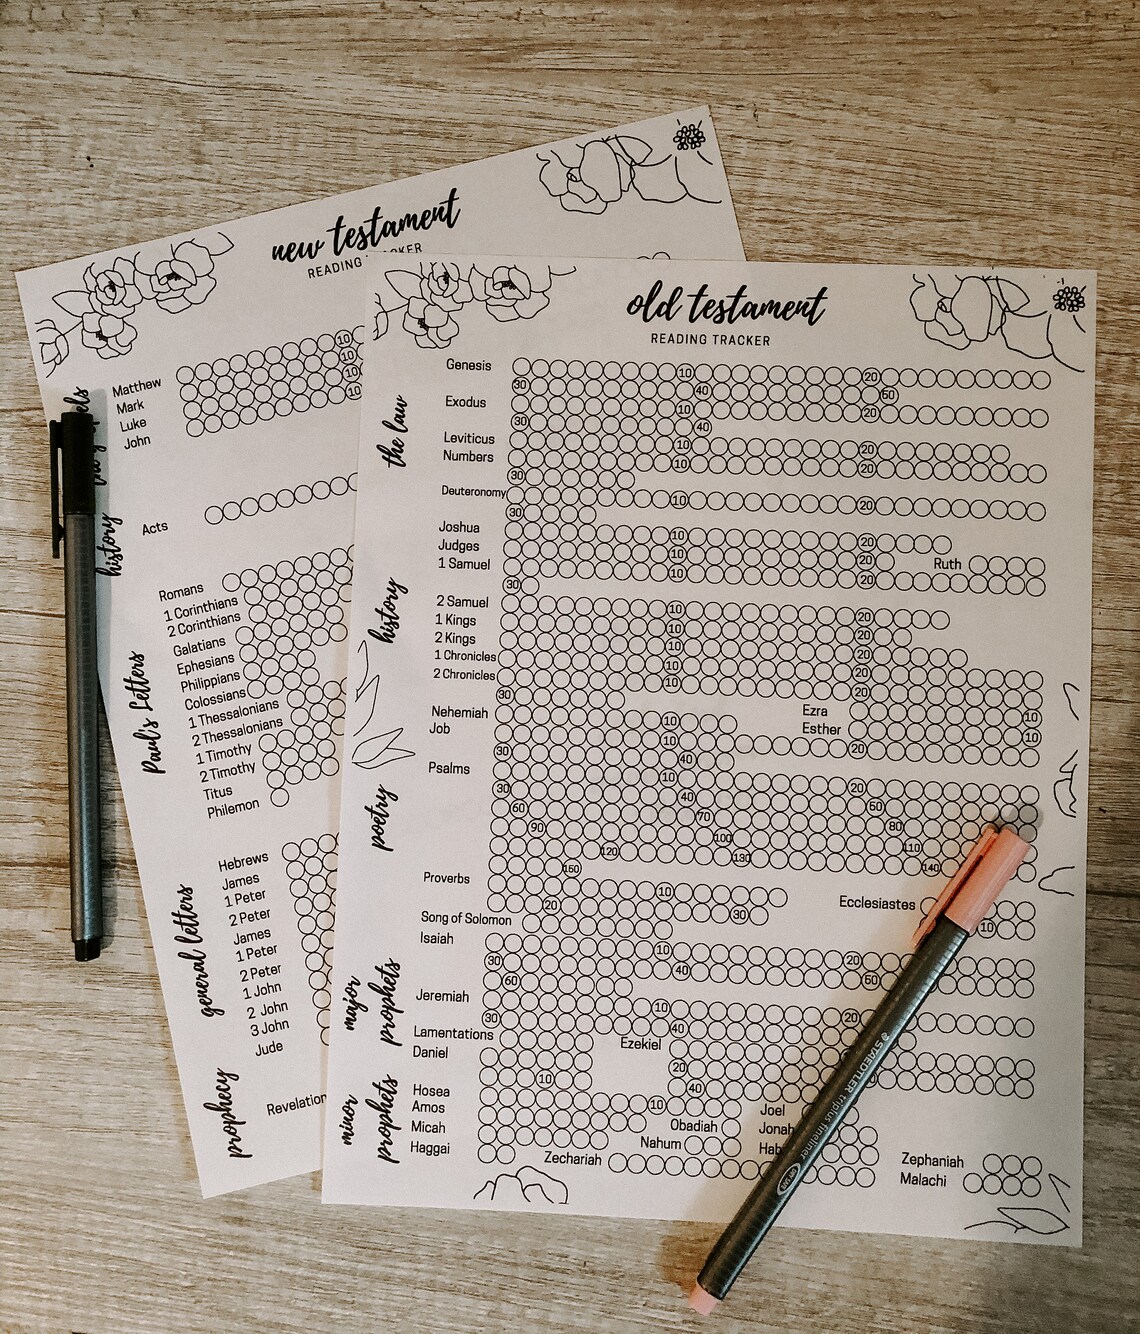 new testament
READING TRACKER
Matthew 10
Mark 10
Luke 10
John 10
history
Acts
Paul's Letters
Romans
1 Corinthians
2 Corinthians
Galatians
Ephesians
Philippians
Colossians
1 Thessalonians
2 Thessalonians
1 Timothy
2 Timothy
Titus
Philemon
general letters
Hebrews
James
1 Peter
2 Peter
James
1 Peter
2 Peter
1 John
2 John
3 John
Jude
prophecy
Revelation
old testament
READING TRACKER
the law
Genesis 10 20
30 40 50
Exodus 10 20
30 40
Leviticus 10 20
Numbers 10 20
30
Deuteronomy 10 20
30
history
Joshua 10 20
Judges 10 20 Ruth
1 Samuel 10 20
30
2 Samuel 10 20
1 Kings 10 20
2 Kings 10 20
1 Chronicles 10 20
2 Chronicles 10 20
30 Ezra 10
Nehemiah 10 Esther 10
poetry
Job 10 20
30 40
Psalms 10 20
30 40 50
60 70 80
90 100 110
120 130 140
150
Proverbs 10 Ecclesiastes
20 30 10
Song of Solomon
major prophets
Isaiah 10 20
30 40 50
60
Jeremiah 10 20
30 40
Lamentations Ezekiel
Daniel 20
10 40
minor prophets
Hosea 10 Joel
Amos Obadiah Jonah
Micah Nahum
Haggai Zechariah Zephaniah
Malachi
STAEDTLER triplus fineliner